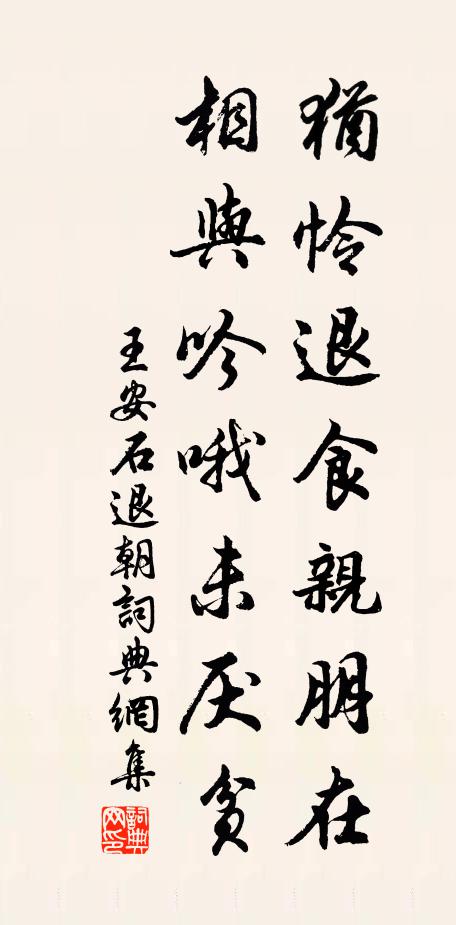 猶怜退食親朋在
相與吟哦未厌貧
王安石退朝詞典網集
詞典
网印